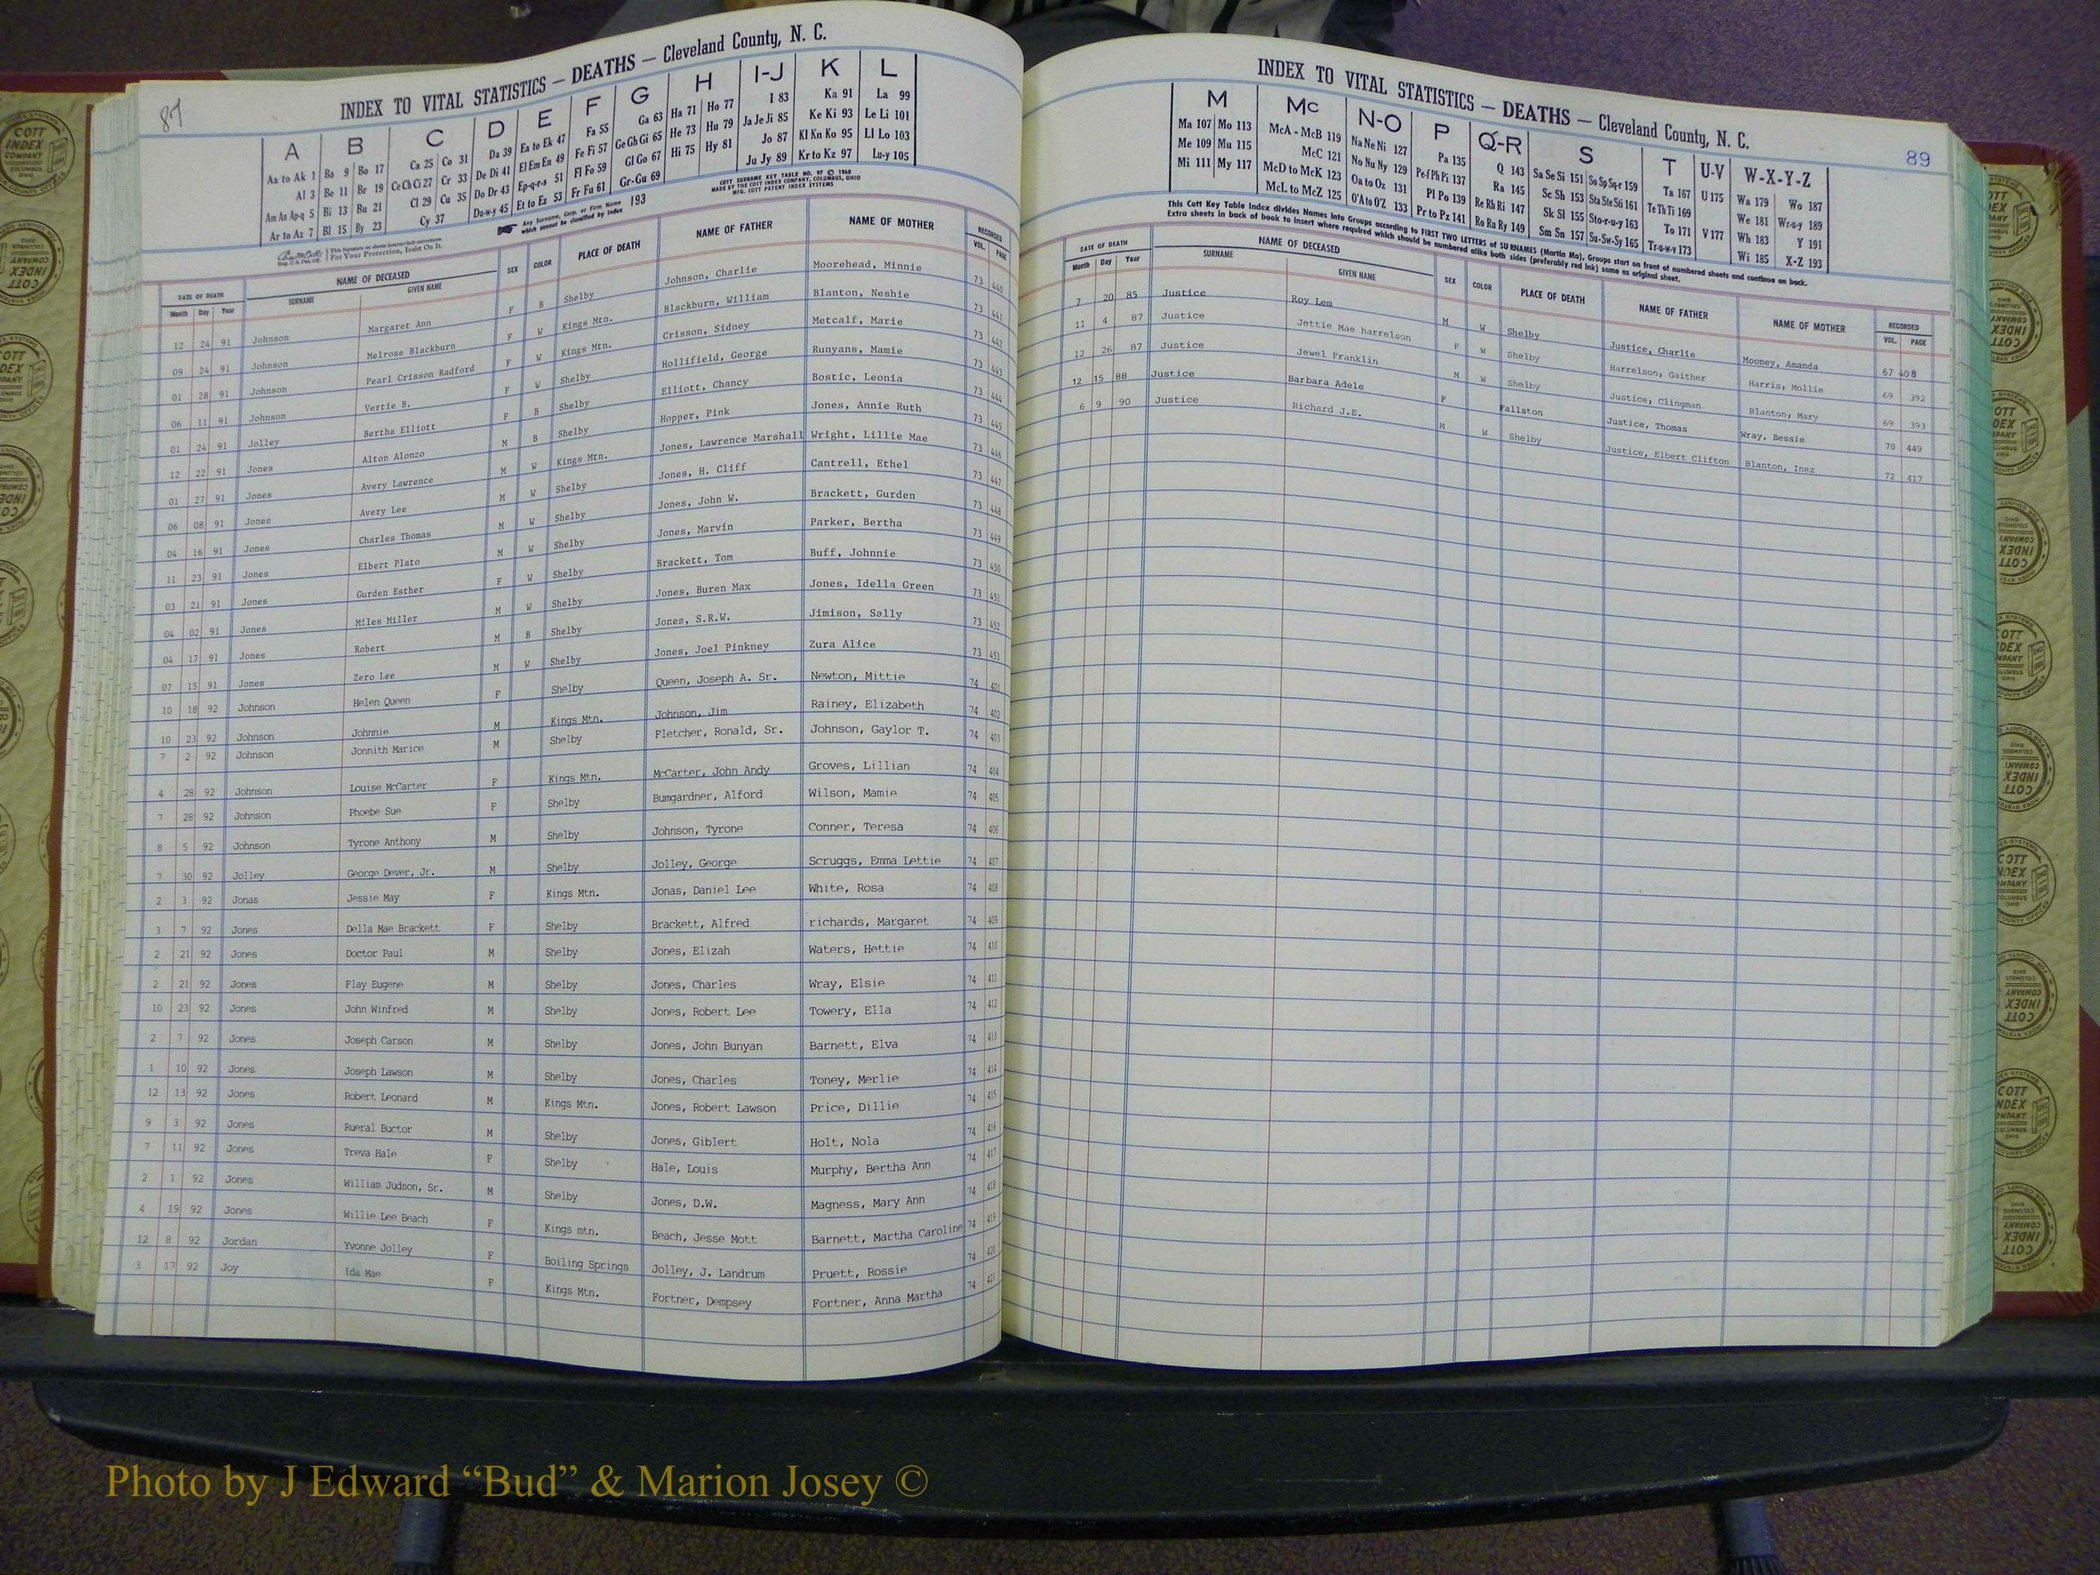 87
INDEX TO VITAL STATISTICS — DEATHS — Cleveland County, N. C.
A B C D E F G H I-J K L
Aa to Ak 1 Ba 9 Bo 17 Ca 25 Co 31 Da 39 Ea to Ek 47 Fa 55 Ga 63 Ha 71 Ho 77 I 83 Ka 91 La 99
Al 3 Be 11 Br 19 Ce Ch Ci 27 Cr 33 De Di 41 El Em En 49 Fe Fi 57 Ge Gh Gi 65 He 73 Hu 79 Ja Je Ji 85 Ke Ki 93 Le Li 101
Am An Ap-q 5 Bi 13 Bu 21 Cl 29 Cu 35 Do Dr 43 Ep-q-r-s 51 Fl Fo 59 Gl Go 67 Hi 75 Hy 81 Jo 87 Kl Kn Ko 95 Ll Lo 103
Ar to Az 7 Bl 15 By 23 Cy 37 Du-w-y 45 Et to Ez 53 Fr Fu 61 Gr-Gu 69 Ju Jy 89 Kr to Kz 97 Lu-y 105
Any Surname, Corp. or Firm Name which cannot be classified by index 193
COTT SURNAME KEY TABLE NO. 97 © 1960
MADE BY THE COTT INDEX COMPANY, COLUMBUS, OHIO
MFG. COTT PATENT INDEX SYSTEMS
For Your Protection, Insist On It.
DATE OF DEATH NAME OF DECEASED SEX COLOR PLACE OF DEATH NAME OF FATHER NAME OF MOTHER RECORDED
Month Day Year SURNAME GIVEN NAME VOL. PAGE
12 24 91 Johnson Margaret Ann F B Shelby Johnson, Charlie Moorehead, Minnie 73 440
09 24 91 Johnson Melrose Blackburn F W Kings Mtn. Blackburn, William Blanton, Neshie 73 441
01 28 91 Johnson Pearl Crisson Radford F W Kings Mtn. Crisson, Sidney Metcalf, Marie 73 442
06 11 91 Johnson Vertie B. F W Shelby Hollifield, George Runyans, Mamie 73 443
01 24 91 Jolley Bertha Elliott F B Shelby Elliott, Chancy Bostic, Leonia 73 444
12 22 91 Jones Alton Alonzo M B Shelby Hopper, Pink Jones, Annie Ruth 73 445
01 27 91 Jones Avery Lawrence M W Kings Mtn. Jones, Lawrence Marshall Wright, Lillie Mae 73 446
06 08 91 Jones Avery Lee M W Shelby Jones, H. Cliff Cantrell, Ethel 73 447
04 16 91 Jones Charles Thomas M W Shelby Jones, John W. Brackett, Gurden 73 448
11 23 91 Jones Elbert Plato M W Shelby Jones, Marvin Parker, Bertha 73 449
03 21 91 Jones Gurden Esther F W Shelby Brackett, Tom Buff, Johnnie 73 450
04 02 91 Jones Miles Miller M W Shelby Jones, Buren Max Jones, Idella Green 73 451
04 17 91 Jones Robert M B Shelby Jones, S.R.W. Jimison, Sally 73 452
07 15 91 Jones Zero Lee M W Shelby Jones, Joel Pinkney Zura Alice 73 453
10 18 92 Johnson Helen Queen F Shelby Queen, Joseph A. Sr. Newton, Mittie 74 401
10 23 92 Johnson Johnnie M Kings Mtn. Johnson, Jim Rainey, Elizabeth 74 402
7 2 92 Johnson Jonnith Marice M Shelby Fletcher, Ronald, Sr. Johnson, Gaylor T. 74 403
4 28 92 Johnson Louise McCarter F Kings Mtn. McCarter, John Andy Groves, Lillian 74 404
7 28 92 Johnson Phoebe Sue F Shelby Bumgardner, Alford Wilson, Mamie 74 405
8 5 92 Johnson Tyrone Anthony M Shelby Johnson, Tyrone Conner, Teresa 74 406
7 30 92 Jolley George Dever, Jr. M Shelby Jolley, George Scruggs, Emma Lettie 74 407
2 3 92 Jonas Jessie May F Kings Mtn. Jonas, Daniel Lee White, Rosa 74 408
3 7 92 Jones Della Mae Brackett F Shelby Brackett, Alfred richards, Margaret 74 409
2 21 92 Jones Doctor Paul M Shelby Jones, Elizah Waters, Hettie 74 410
2 21 92 Jones Flay Eugene M Shelby Jones, Charles Wray, Elsie 74 411
10 23 92 Jones John Winfred M Shelby Jones, Robert Lee Towery, Ella 74 412
2 7 92 Jones Joseph Carson M Shelby Jones, John Bunyan Barnett, Elva 74 413
1 10 92 Jones Joseph Lawson M Shelby Jones, Charles Toney, Merlie 74 414
12 13 92 Jones Robert Leonard M Kings Mtn. Jones, Robert Lawson Price, Dillie 74 415
9 3 92 Jones Rueral Buctor M Shelby Jones, Giblert Holt, Nola 74 416
7 11 92 Jones Treva Hale F Shelby Hale, Louis Murphy, Bertha Ann 74 417
2 1 92 Jones William Judson, Sr. M Shelby Jones, D.W. Magness, Mary Ann 74 418
4 19 92 Jones Willie Lee Beach F Kings mtn. Beach, Jesse Mott Barnett, Martha Caroline 74 419
12 8 92 Jordan Yvonne Jolley F Boiling Springs Jolley, J. Landrum Pruett, Rossie 74 420
3 17 92 Joy Ida Mae F Kings Mtn. Fortner, Dempsey Fortner, Anna Martha 74 421
INDEX TO VITAL STATISTICS — DEATHS — Cleveland County, N. C.
89
M Mc N-O P Q-R S T U-V W-X-Y-Z
Ma 107 Mo 113 McA - McB 119 Na Ne Ni 127 Pa 135 Q 143 Sa Se Si 151 So Sp Sq-r 159 Ta 167 U 175 Wa 179 Wo 187
Me 109 Mu 115 McC 121 No Nu Ny 129 Pe-f Ph Pi 137 Ra 145 Sc Sh 153 Sta Ste Sti 161 Te Th Ti 169 We 181 Wr-u-y 189
Mi 111 My 117 McD to McK 123 Oa to Oz 131 Pl Po 139 Re Rh Ri 147 Sk Sl 155 Sto-r-u-y 163 To 171 V 177 Wh 183 Y 191
McL to McZ 125 O'A to O'Z 133 Pr to Pz 141 Ro Ru Ry 149 Sm Sn 157 Su-Sw-Sy 165 Tr-u-w-y 173 Wi 185 X-Z 193
This Cott Key Table Index divides Names into Groups according to FIRST TWO LETTERS of SURNAMES (Martin Ma), Groups start on front of numbered sheets and continue on back.
Extra sheets in back of book to insert where required which should be numbered alike both sides (preferably red ink) same as original sheet.
DATE OF DEATH NAME OF DECEASED SEX COLOR PLACE OF DEATH NAME OF FATHER NAME OF MOTHER RECORDED
Month Day Year SURNAME GIVEN NAME VOL. PAGE
7 20 85 Justice Roy Lem M W Shelby Justice, Charlie Mooney, Amanda 67 408
11 4 87 Justice Jettie Mae harrelson F W Shelby Harrelson, Gaither Harris, Mollie 69 392
12 26 87 Justice Jewel Franklin M W Shelby Justice, Clingman Blanton, Mary 69 393
12 15 88 Justice Barbara Adele F Fallston Justice, Thomas Wray, Bessie 70 449
6 9 90 Justice Richard J.E. M W Shelby Justice, Elbert Clifton Blanton, Inez 72 417
Photo by J Edward “Bud” & Marion Josey ©